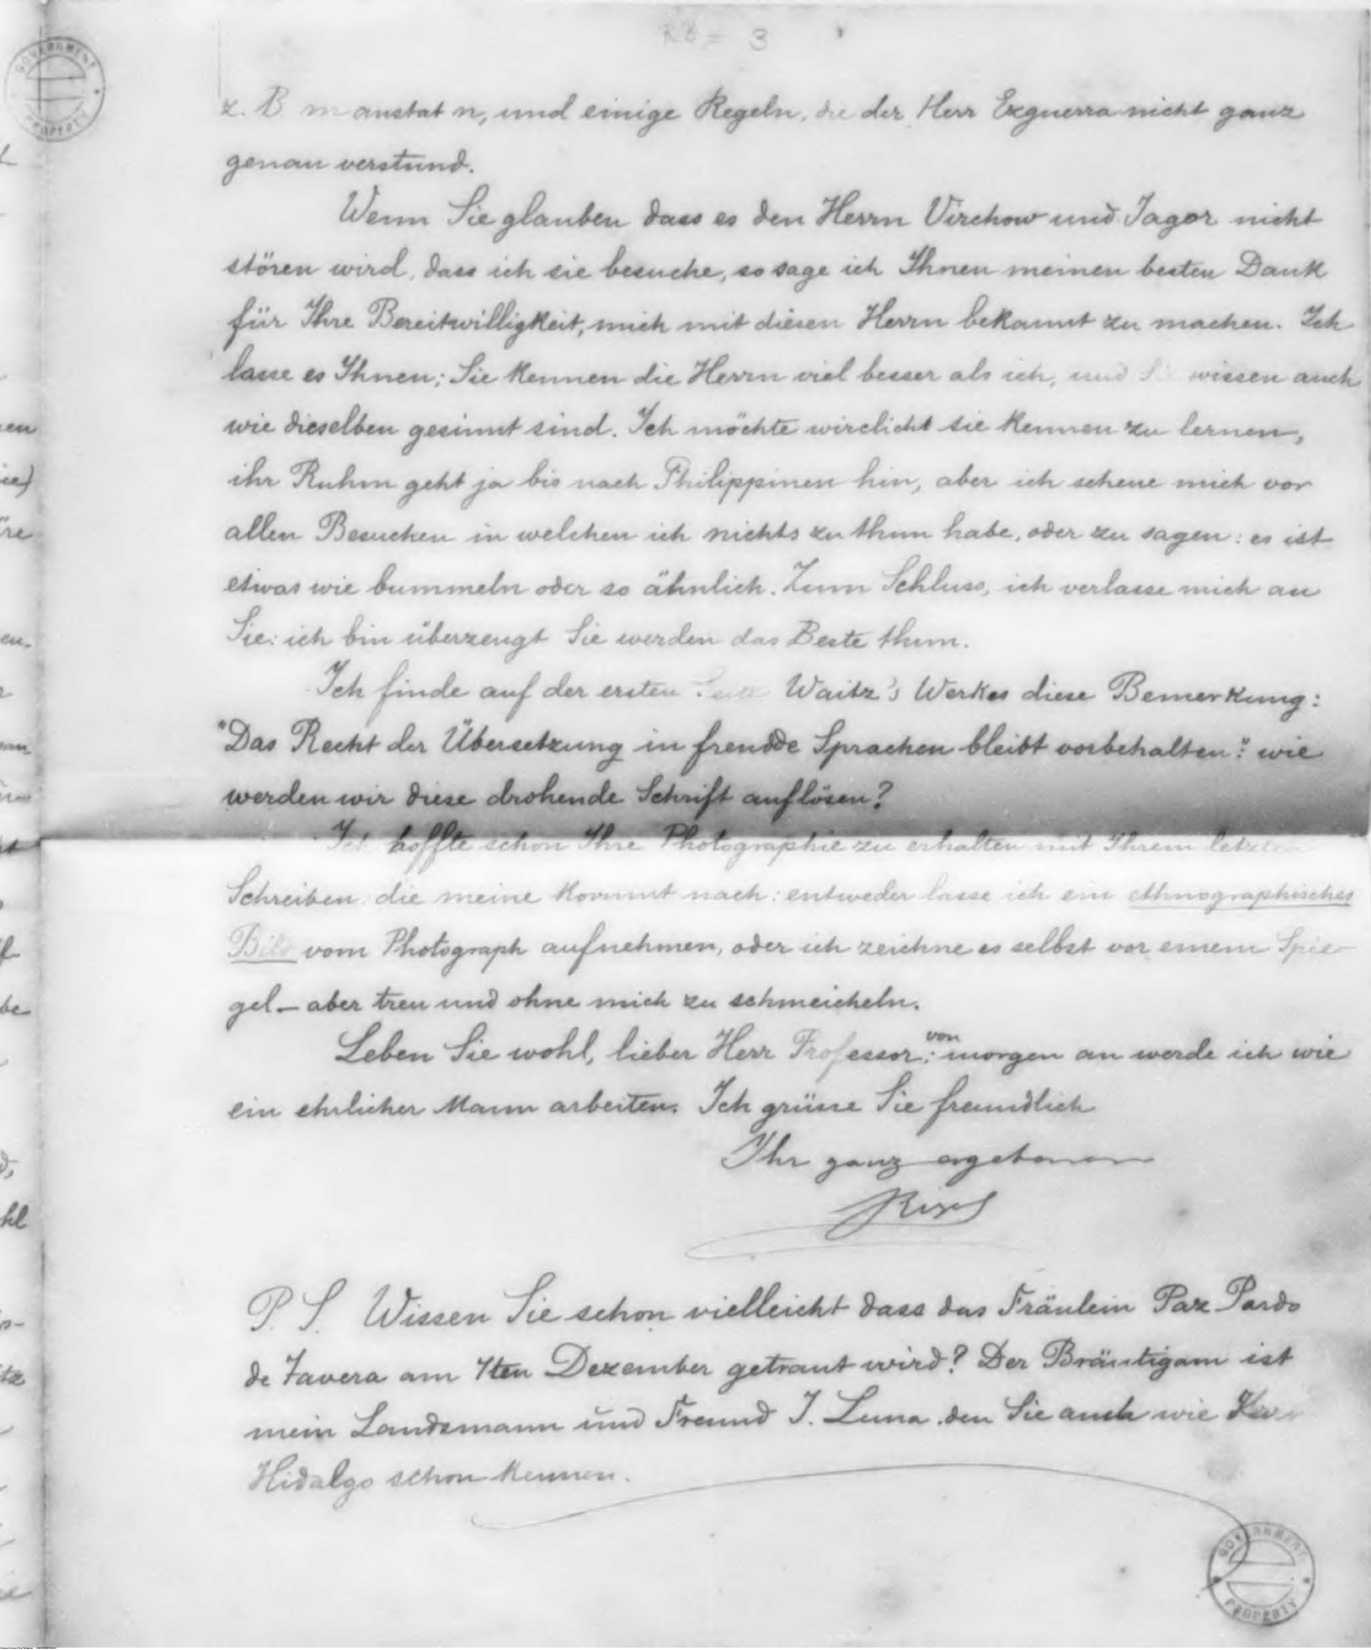 RB = 3
GOVERNMENT PROPERTY
z. B m anstat n, und einige Regeln, die der Herr Ezguerra nicht ganz
genau verstund.
Wenn Sie glauben dass es den Herrn Virchow und Jagor nicht
stören wird, dass ich sie besuche, so sage ich Ihnen meinen besten Dank
für Ihre Bereitwilligkeit, mich mit diesen Herrn bekannt zu machen. Ich
lasse es Ihnen; Sie kennen die Herrn viel besser als ich, und Sie wissen auch
wie dieselben gesinnt sind. Ich möchte wirclicht sie kennen zu lernen,
ihr Ruhm geht ja bis nach Philippinen hin, aber ich scheue mich vor
allen Besuchen in welchen ich nichts zu thun habe, oder zu sagen: es ist
etwas wie bummeln oder so ähnlich. Zum Schluss, ich verlasse mich an
Sie: ich bin überzeugt Sie werden das Beste thun.
Ich finde auf der ersten Seite Waitz's Werkes diese Bemerkung:
"Das Recht der Übersetzung in fremdde Sprachen bleibt vorbehalten": wie
werden wir diese drohende Schrift auflösen?
Ich hoffte schon Ihre Photographie zu erhalten mit Ihrem letzten
Schreiben: die meine kommt nach: entweder lasse ich ein ethnographisches
Bild vom Photograph aufnehmen, oder ich zeichne es selbst vor einem Spie-
gel – aber treu und ohne mich zu schmeicheln.
Leben Sie wohl, lieber Herr Professor; von morgen an werde ich wie
ein ehrlicher Mann arbeiten. Ich grüsse Sie freundlich
Ihr ganz ergebener
Rizal
P. S. Wissen Sie schon vielleicht dass das Fräulein Paz Pardo
de Tavera am 7ten Dezember getraut wird? Der Bräutigam ist
mein Landsmann und Freund J. Luna den Sie auch wie Herr
Hidalgo schon kennen.
GOVERNMENT PROPERTY